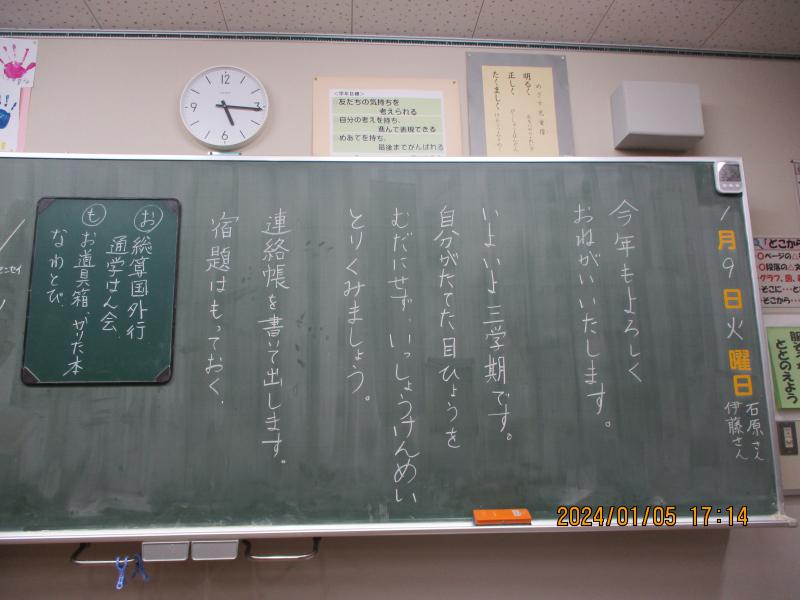 1月9日火曜日
石原さん
伊藤さん
今年もよろしく
おねがいいたします。
いよいよ三学期です。
自分がたてた目ひょうを
むだにせず、いっしょうけんめい
とりくみましょう。
連絡帳を書いて出します。
宿題はもっておく.
お 総算国外行
通学はん会.
も お道具箱.かりた本
なわとび.
<学年目標>
友だちの気持ちを
考えられる
自分の考えを持ち、
進んで表現できる
めあてを持ち、
最後までがんばれる
めざす児童像
明るく
正しく
たくましく
12
3
6
9
「どこから
〇ページの
〇段落の
グラフ、図、
そこに・・・と
そこから・・・
ととのえよう
2024/01/05 17:14